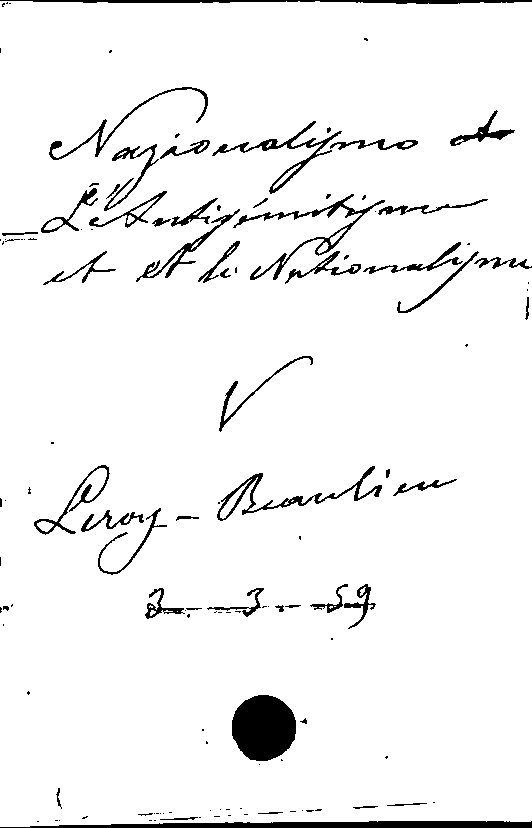 Nazionalismo et
L'Antisémitisme
et et le Nationalisme
V
Leroy-Beaulieu
3. 3. 59